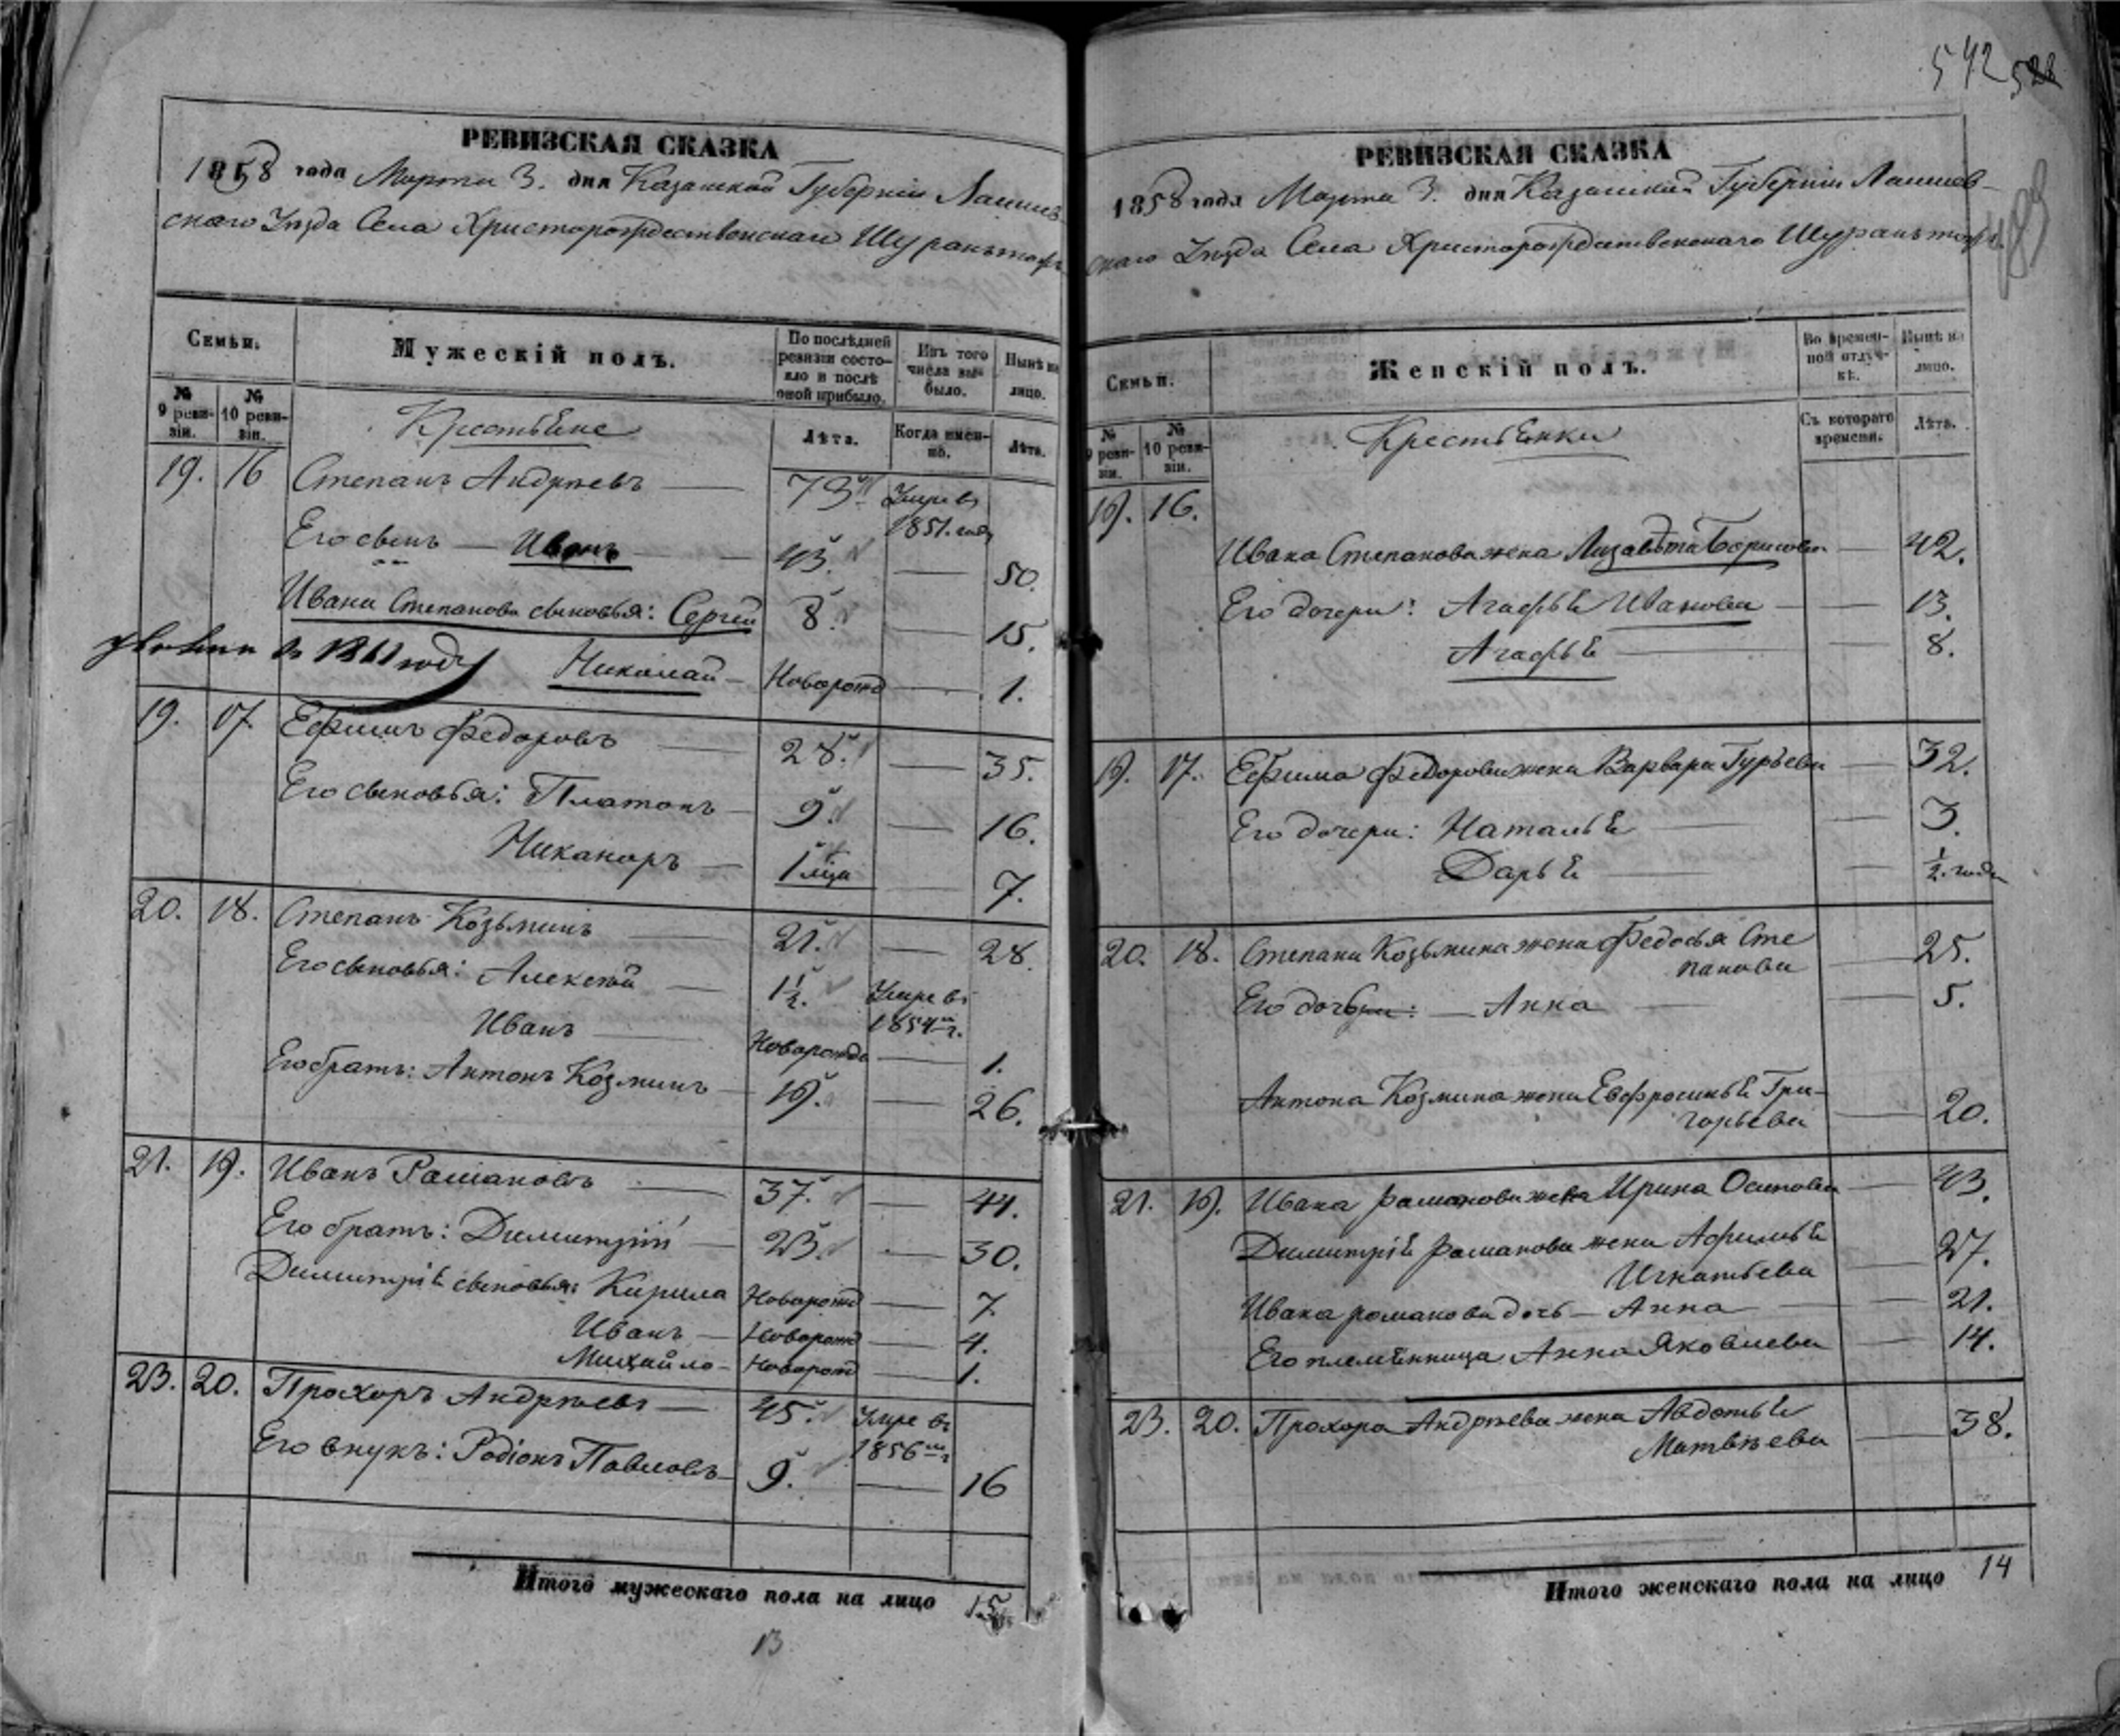 542 528
РЕВИЗСКАЯ СКАЗКА
1858 года Марта 3. дня Казанской Губерніи Лаишев-
скаго Уѣзда Села Христорождественскаго Шуранъ тожъ
Семьи.
Мужескій полъ.
По послѣдней ревизіи состояло и послѣ оной прибыло.
Изъ того числа выбыло.
Нынѣ на лицо.
№ 9 ревизіи.
№ 10 ревизіи.
Лѣта.
Когда именно.
Лѣта.
Крестьяне
19. 16 Степанъ Андреевъ — 73. Умре въ 1851. году
Его сынъ — Иванъ — 43. — 50.
Ивана Степанова сыновья: Сергей 8. — 15.
въ 1861 году Николай — Новорожд — 1.
19. 17. Ефимъ Федоровъ — 28. — 35.
Его сыновья: Платонъ — 9. — 16.
Никаноръ — 1 мца — 7.
20. 18. Степанъ Козьминъ — 21. — 28.
Его сыновья: Алексей — 1½. Умре въ 1854 г.
Иванъ — Новорожд — 1.
Его братъ: Антонъ Козминъ — 19. — 26.
21. 19. Иванъ Рамановъ — 37. — 44.
Его братъ: Димитрій — 23. — 30.
Димитрія сыновья: Кирила Новорожд — 7.
Иванъ — Новорожд — 4.
Михайло — Новорожд — 1.
23. 20. Прохоръ Андреевъ — 45. Умре въ 1856 г
Его внукъ: Родіонъ Павловъ — 9. — 16
Итого мужескаго пола на лицо 15
13
РЕВИЗСКАЯ СКАЗКА
1858 года Марта 3. дня Казанской Губерніи Лаишев-
скаго Уѣзда Села Христорождественскаго Шуранъ тожъ
Семьи.
Женскій полъ.
Во временной отлучкѣ.
Нынѣ на лицо.
№ 9 ревизіи.
№ 10 ревизіи.
Съ котораго времени.
Лѣта.
Крестьянки
19. 16. Ивана Степанова жена Лизавѣта Борисова — 42.
Его дочери: Агафья Иванова — 13.
Агафья — 8.
19. 17. Ефима Федорова жена Варвара Гурьева — 32.
Его дочери: Наталья — 3.
Дарья — ½. года
20. 18. Степана Козьмина жена Федосья Сте
панова — 25.
Его дочери: — Анна — 5.
Антона Козмина жена Евфросинья Гри-
горьева — 20.
21. 19. Ивана Раманова жена Ирина Осипова — 43.
Димитрія Раманова жена Афимья
Игнатьева — 27.
Ивана романова дочь — Анна — 21.
Его племянница Анна Яковлева — 14.
23. 20. Прохора Андреева жена Авдотья
Матвѣева — 38.
Итого женскаго пола на лицо 14